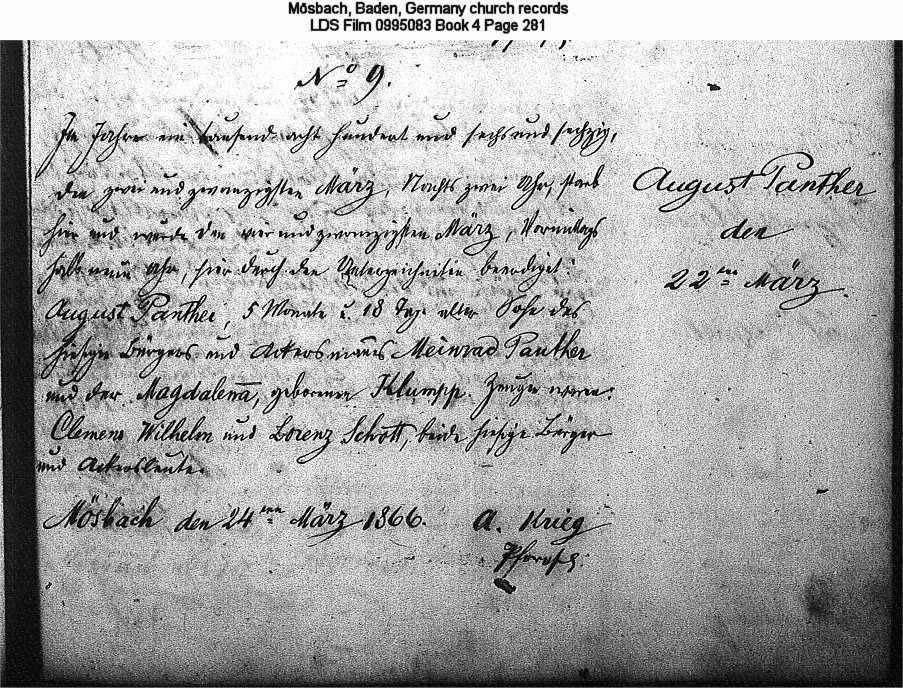 Mösbach, Baden, Germany church records
LDS Film 0995083 Book 4 Page 281
No 9.
Im Jahre ein tausend acht hundert und sechs und sechzig,
den zwei und zwanzigsten März, Nachts zwei Uhr, starb
hier und wurde den vier und zwanzigsten März, Vormittags
halb neun Uhr, hier durch den Unterzeichneten beerdiget:
August Panther, 5 Monate u. 18 Tage alter Sohn des
hiesigen Bürgers und Ackersmanns Meinrad Panther
und der Magdalena, geborenen Klumpp. Zeugen waren:
Clemens Wilhelm und Lorenz Schott, beide hiesige Bürger
und Ackersleute.
Mösbach den 24ten März 1866.
A. Krieg
August Panther
den
22ten März.